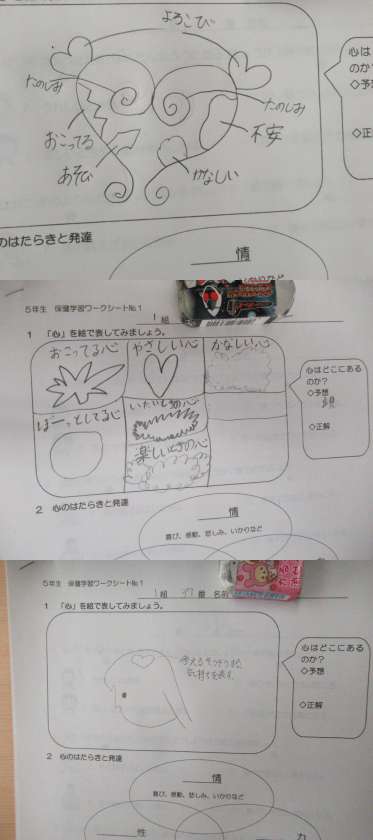 よろこび
たのしみ
たのしみ
おこってる
不安
あそび
かなしい
心は
のか?
◇予想
◇正
のはたらきと発達
情
5年生 保健学習ワークシート№1
1組
1 「心」を絵で表してみましょう。
おこってる心
やさしい心
かなしい心
ぼーっとしてる心
楽しいときの心
心はどこにある
のか?
◇予想
◇正解
2 心のはたらきと発達
情
喜び、感動、悲しみ、いかりなど
5年生 保健学習ワークシート№1
1組 37番 名前
1 「心」を絵で表してみましょう。
気持ちを表す
心はどこにある
のか?
◇予想
◇正解
2 心のはたらきと発達
情
喜び、感動、悲しみ、いかりなど
性
力